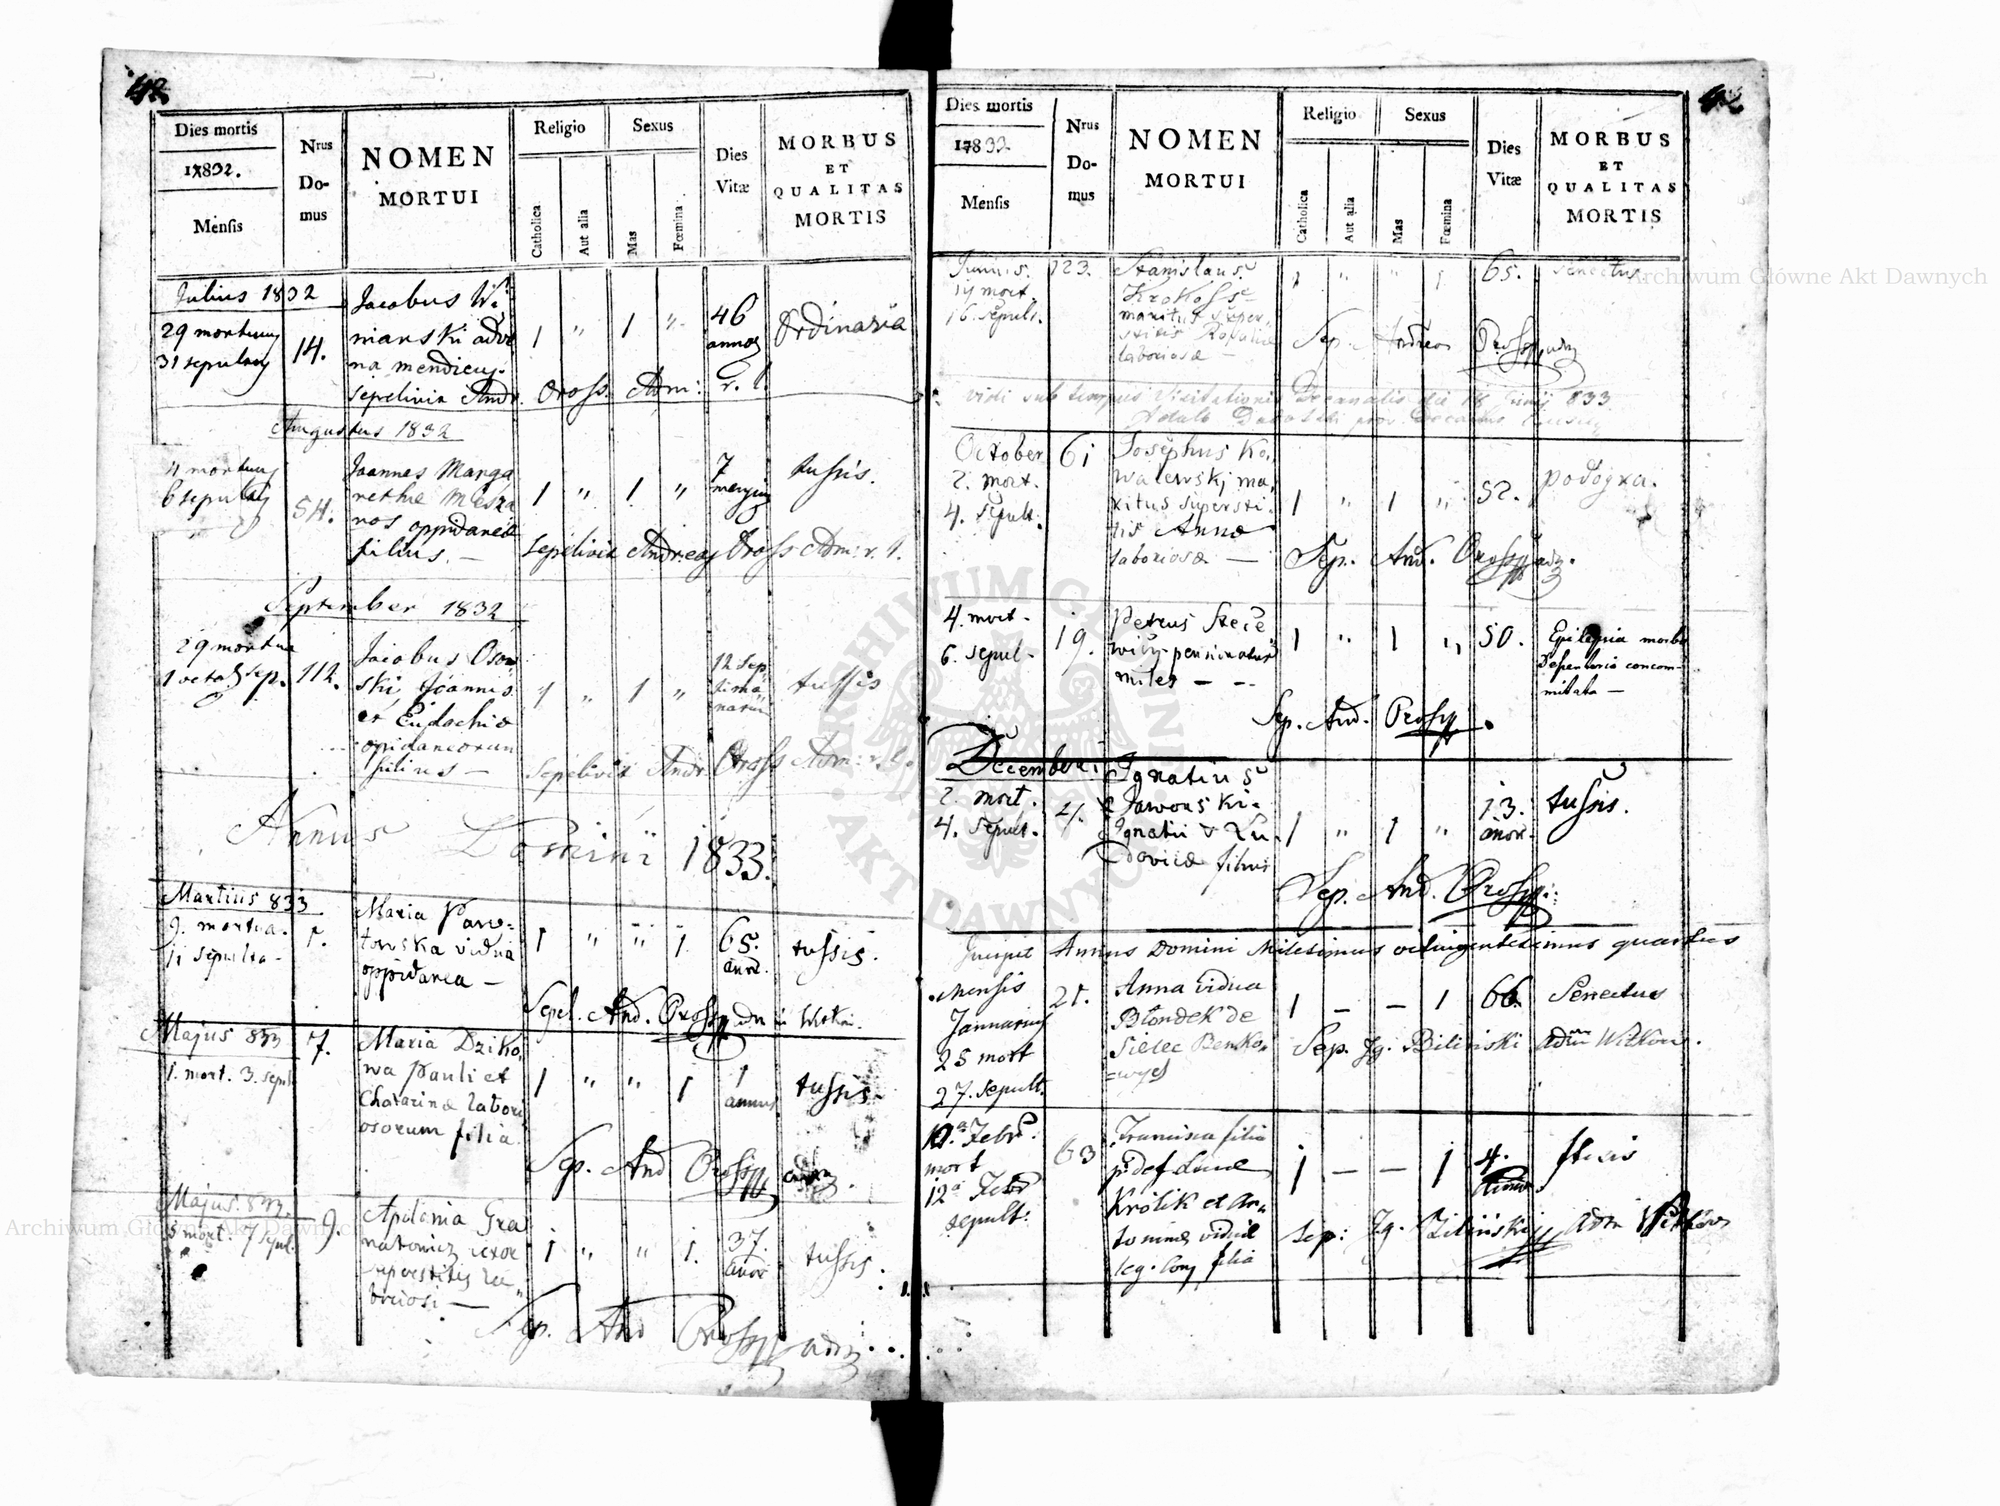 42
Dies mortis
17832.
Mensis
Nrus
Do-
mus
NOMEN
MORTUI
Religio
Catholica
Aut alia
Sexus
Mas
Fœmina
Dies
Vitæ
MORBUS
ET
QUALITAS
MORTIS
Julius 1832
29 mortuus
31 sepultus
14.
Jacobus
mendicus
1 " 1 "
46
annos
Ordinaria
sepelivit Andr. Oross. Adm: r. l.
Augustus 1832
4 mortuus
6 sepultus
54.
Joannes Marga
rethæ
nos oppidaneæ
filius. —
1 " 1 "
7
tussis.
Sepelivit Andreas Oross Adm: r. l.
September 1832
29 mortuus
1 octob sep.
112.
Jacobus
ski Joannis
et Eudochiæ
opidaneorum
filius —
1 " 1 "
12 sep
tima
tussis
Sepelivit Andr. Oross Adm: r. l.
Annus Domini 1833.
Martius 833
9. mortua.
11 sepulta.
Maria
towska vidua
oppidanea —
1 " " 1
65.
tussis.
Sepel. And. Oross
Majus 833
1. mort. 3. sepul
7.
Maria Dziko
wa Pauli et
Chatarinæ labori
osorum filia.
1 " " 1
1
annus
tussis.
Sep. And Oross
Majus. 833.
5 mort. 7 sepul.
9.
Apolonia Gra
natowicz uxor
superstitis la
boriosi —
1 " " 1.
37.
tussis.
Sep. And Oross adm
42
Dies mortis
17833.
Mensis
Nrus
Do-
mus
NOMEN
MORTUI
Religio
Catholica
Aut alia
Sexus
Mas
Fœmina
Dies
Vitæ
MORBUS
ET
QUALITAS
MORTIS
Junius.
14 mort.
16. sepult.
123.
Stanislaus
maritus super
stitis
laboriosæ —
1 " " 1
65.
senectus
Sep. Andreas Oross adm
vidi sub tempus Visitationis Decanalis die 18 Junij 833
October
2. mort.
4. sepult.
61
Josephus Ko
walewskj ma
ritus supersti
tis Annæ
laboriosæ —
1 " 1 "
52.
podogra.
Sep. And. Oross adm.
4. mort.
6. sepul.
19.
Petrus
miles — -
1 " 1 "
50.
Epilepsia morbo
concom
mitata —
Sep. And. Oross
Decembri
2. mort.
4. sepult.
4.
Ignatius
Jaworski
Ignatii & Lu
dovicæ filius
1 " 1 "
13.
anor.
tussis.
Sep. And. Oross
Incipit Annus Domini Milesimus octingentesimus quartus
Mensis
Januarius
25 mort
27. sepult.
21.
Anna vidua
Błondek de
Sielec Benko
=wyej
1 — — 1
66.
Senectus
Sep. Ig. Biliński adm Witków.
10.a Febr.
mort
12a Febr
sepult:
63
Francisca filia
p. def Lucæ
Królik et An
toninæ viduæ
leg. conj filia
1 — — 1
4.
ftisis
Sep: Ig. Biliński adm Witków
ARCHIWUM GŁÓWNE
AKT DAWNYCH
Archiwum Główne Akt Dawnych
Archiwum Główne Akt Dawnych